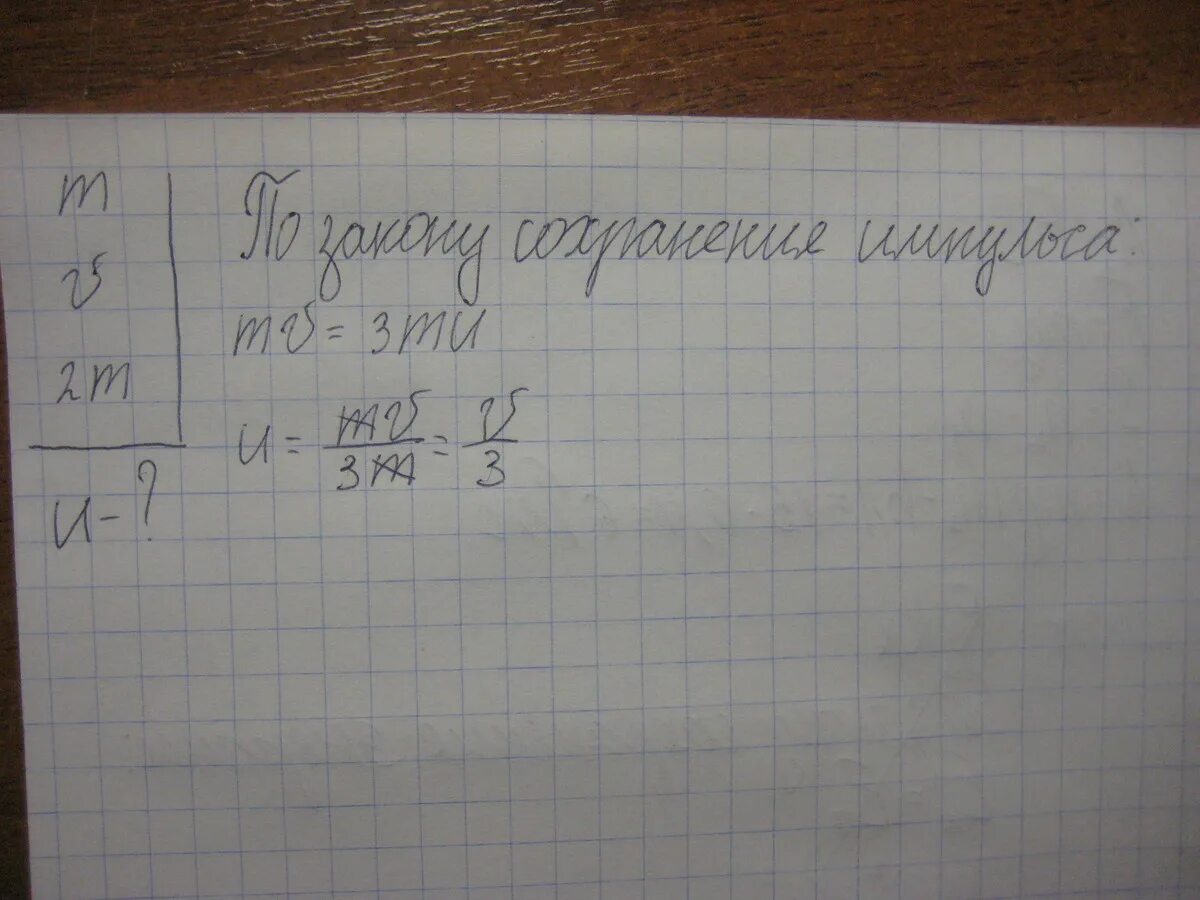 m
v
2m
u - ?
По закону сохранения импульса:
mv = 3mu
u = mv/3m = v/3